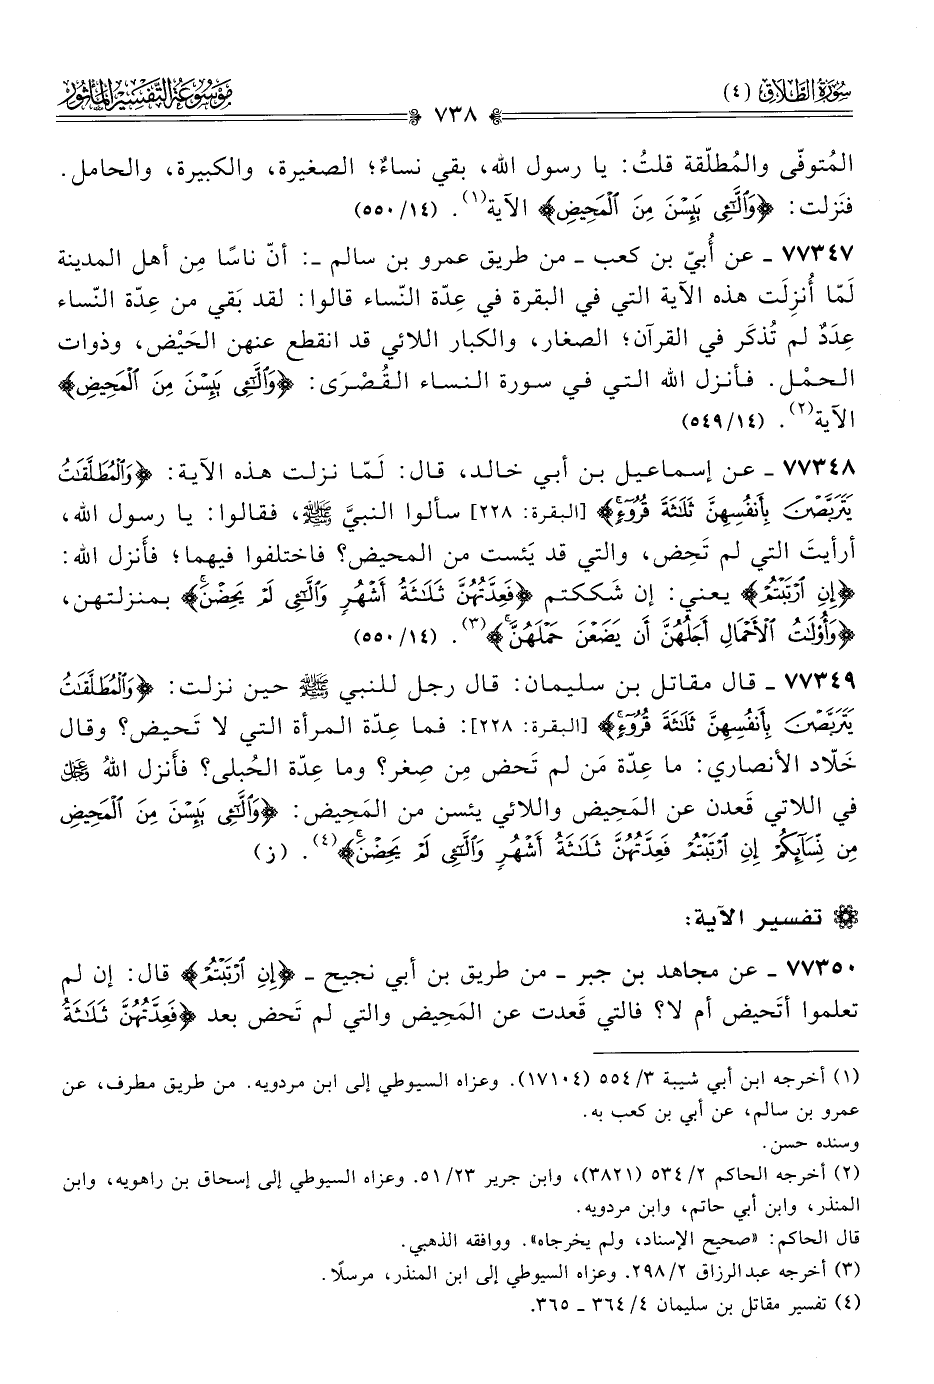 سُورَةُ الطَّلَاقِ (٤)
٧٣٨
مَوْسُوعَةُ التَّفْسِيْرِ المَأْثُورِ
المُتوفّى والمُطلّقة قلتُ: يا رسول الله، بقي نساءٌ؛ الصغيرة، والكبيرة، والحامل.
فنَزلت: ﴿وَالَّٰٓـِٔي يَئِسْنَ مِنَ الْمَحِيضِ﴾ الآية(١). (١٤/ ٥٥٠)
٧٧٣٤٧ ـ عن أُبيّ بن كعب ـ من طريق عمرو بن سالم ـ: أنّ ناسًا مِن أهل المدينة
لَمّا أُنزِلَت هذه الآية التي في البقرة في عِدّة النّساء قالوا: لقد بَقي من عِدّة النّساء
عِدَدٌ لم تُذكَر في القرآن؛ الصغار، والكبار اللائي قد انقطع عنهن الحَيْض، وذوات
الحمْل. فأنزل الله التي في سورة النساء القُصْرَى: ﴿وَالَّٰٓـِٔي يَئِسْنَ مِنَ الْمَحِيضِ﴾
الآية(٢). (١٤/ ٥٤٩)
٧٧٣٤٨ ـ عن إسماعيل بن أبي خالد، قال: لَمّا نزلت هذه الآية: ﴿وَالْمُطَلَّقَٰتُ
يَتَرَبَّصْنَ بِأَنفُسِهِنَّ ثَلَٰثَةَ قُرُوٓءٍۚ﴾ [البقرة: ٢٢٨] سألوا النبيَّ ﷺ، فقالوا: يا رسول الله،
أرأيتَ التي لم تَحِض، والتي قد يَئست من المحيض؟ فاختلفوا فيهما؛ فأَنزل الله:
﴿إِنِ ارْتَبْتُمْ﴾ يعني: إن شَككتم ﴿فَعِدَّتُهُنَّ ثَلَٰثَةُ أَشْهُرٍ وَالَّٰٓـِٔي لَمْ يَحِضْنَۚ﴾ بمنزلتهن،
﴿وَأُوْلَٰتُ الْأَحْمَالِ أَجَلُهُنَّ أَن يَضَعْنَ حَمْلَهُنَّۚ﴾(٣). (١٤/ ٥٥٠)
٧٧٣٤٩ ـ قال مقاتل بن سليمان: قال رجل للنبي ﷺ حين نزلت: ﴿وَالْمُطَلَّقَٰتُ
يَتَرَبَّصْنَ بِأَنفُسِهِنَّ ثَلَٰثَةَ قُرُوٓءٍۚ﴾ [البقرة: ٢٢٨]: فما عِدّة المرأة التي لا تَحيض؟ وقال
خَلّاد الأنصاري: ما عِدّة مَن لم تَحض مِن صِغر؟ وما عِدّة الحُبلى؟ فأَنزل اللهُ ﷻ
في اللاتي قَعدن عن المَحيض واللائي يئسن من المَحيض: ﴿وَالَّٰٓـِٔي يَئِسْنَ مِنَ الْمَحِيضِ
مِن نِّسَآئِكُمْ إِنِ ارْتَبْتُمْ فَعِدَّتُهُنَّ ثَلَٰثَةُ أَشْهُرٍ وَالَّٰٓـِٔي لَمْ يَحِضْنَۚ﴾(٤). (ز)
تفسير الآية:
٧٧٣٥٠ ـ عن مجاهد بن جبر ـ من طريق بن أبي نجيح ـ ﴿إِنِ ارْتَبْتُمْ﴾ قال: إن لم
تعلموا أتَحيض أم لا؟ فالتي قَعدت عن المَحيض والتي لم تَحض بعد ﴿فَعِدَّتُهُنَّ ثَلَٰثَةُ
(١) أخرجه ابن أبي شيبة ٣/ ٥٥٤ (١٧١٠٤). وعزاه السيوطي إلى ابن مردويه. من طريق مطرف، عن
عمرو بن سالم، عن أبي بن كعب به.
وسنده حسن.
(٢) أخرجه الحاكم ٢/ ٥٣٤ (٣٨٢١)، وابن جرير ٢٣/ ٥١. وعزاه السيوطي إلى إسحاق بن راهويه، وابن
المنذر، وابن أبي حاتم، وابن مردويه.
قال الحاكم: «صحيح الإسناد، ولم يخرجاه». ووافقه الذهبي.
(٣) أخرجه عبدالرزاق ٢/ ٢٩٨. وعزاه السيوطي إلى ابن المنذر، مرسلًا.
(٤) تفسير مقاتل بن سليمان ٤/ ٣٦٤ ـ ٣٦٥.